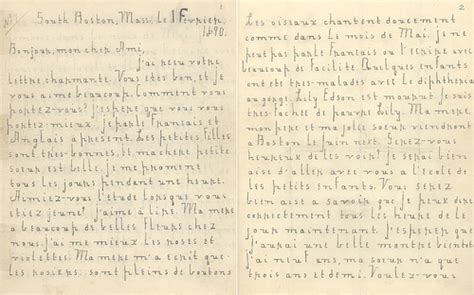 1
South Boston, Mass. le 1 Février,
1890.
Bonjour, mon cher Ami,
j'ai reçu votre
lettre charmante. Vous êtes bon, et je
vous aime beaucoup. Comment vous
portez-vous? j'espère que vous vous
portez-mieux. je parle Français et
Anglais à présent. Les petites filles
sont très-bonnes, et ma chère petite
soeur est belle. je me promène
tous les jours pendant une heure.
Aimiez-vous l'étude lorsque vous
étiez jeune? j'aime à lire. Ma mère
a beaucoup de belles fleurs chez
nous. j'ai me mieux les roses et
violettes. Ma mère m'a écrit que
les rosiers sont pleins de boutons
2
Les oiseaux chantent doucement
comme dans le mois de Mai. je ne
peut pas parle Français ou l'écrire avec
beaucoup de facilité. Quelques enfants
ont été très-malades avec le diphthérie
au gorge. Lily Edson est mourut. je suis
très-fâchée de pauvre Lily. Ma mère,
mon père et ma jolie soeur viendront
à Boston le juin next. Serez-vous
heureux de les voir? je serai bien
aise d'aller avec vous à l'école de
les petits enfants. Vous serez
bien aise à savoir que je peux dire
correctement tous les heures de le
jour maintenant. j'espère que
j'aurai une belle montre bientôt
j'ai neuf ans, ma soeur n'a que
trois ans et demi. Voulez-vous